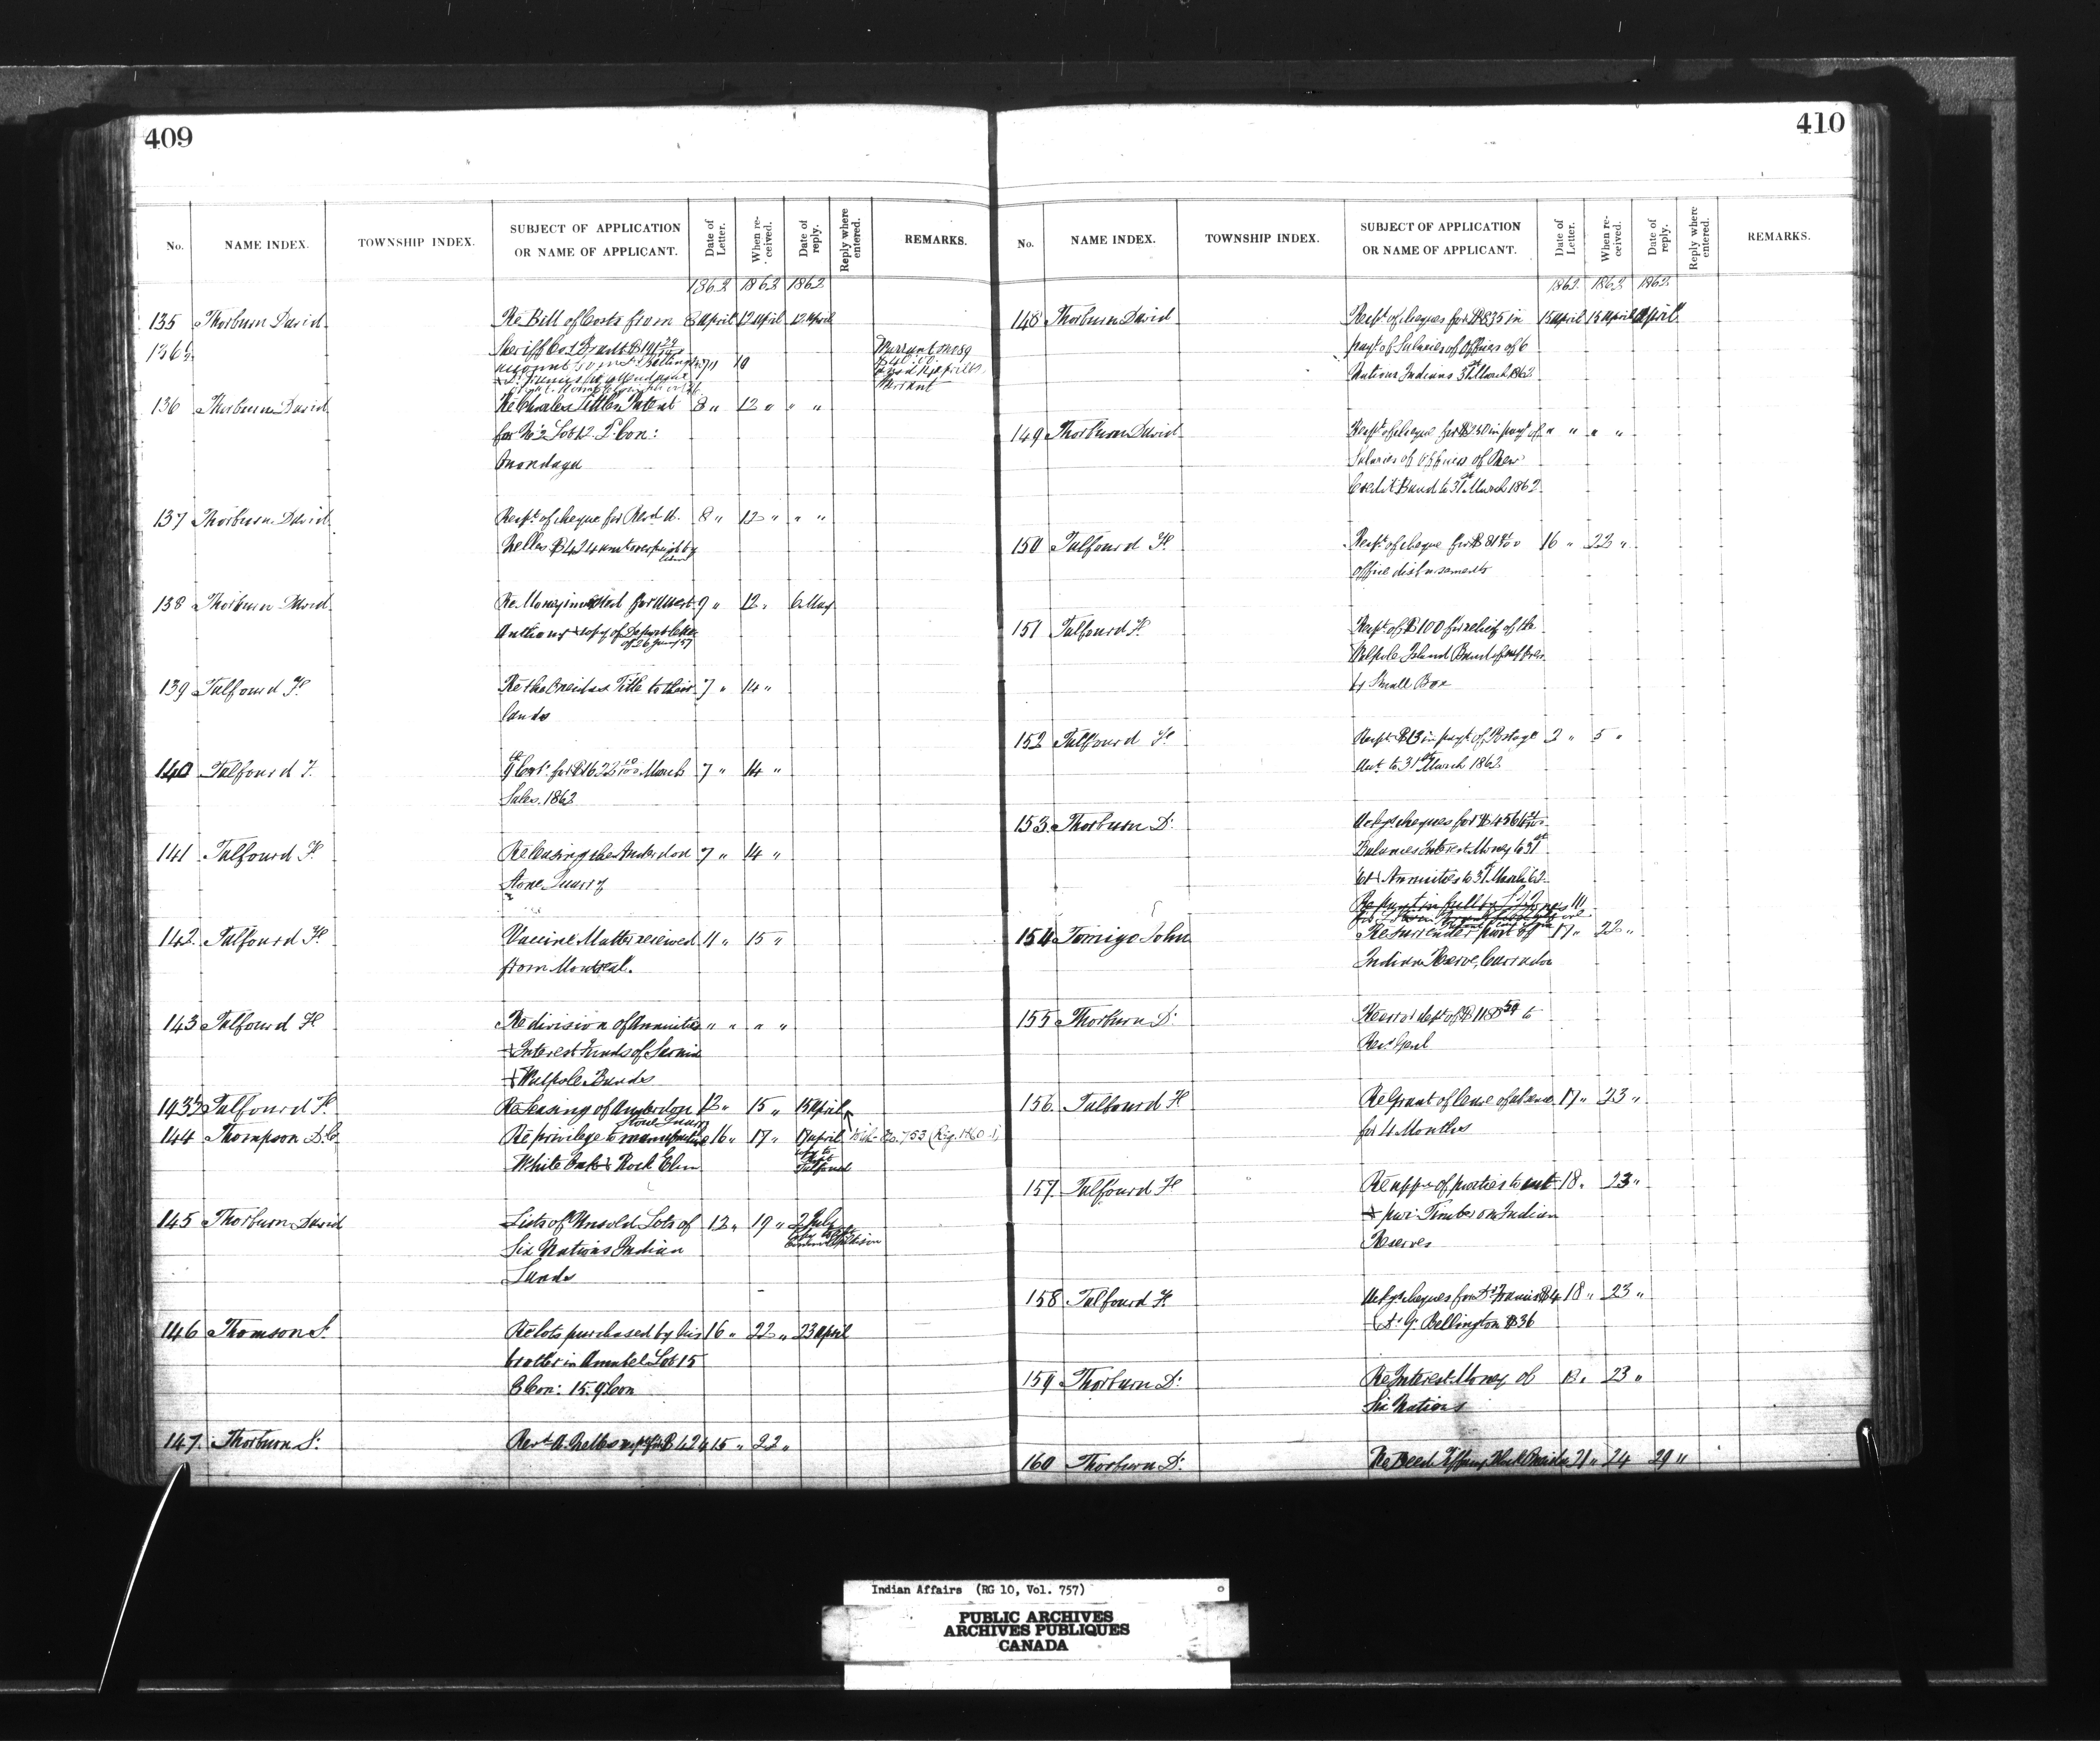 409
No. NAME INDEX. TOWNSHIP INDEX. SUBJECT OF APPLICATION OR NAME OF APPLICANT. Date of Letter. When re-ceived. Date of reply. Reply where entered. REMARKS.
1862 1862 1862
135 Thorburn David Re Bill of Costs from 8 April 12 April 12 April
Sheriff Co. Brant
136½
Warrant
136 Thorburn David Re Charles Tuttles Patent 8 " 12 " " "
for No 2 Lot 12. 2 Con:
Onondaga
137 Thorburn David Recpt of cheque for Revd A. 8 " 12 " " "
Nelles $424
138 Thorburn David Re Money invested for 9 " 12 " 6 May
Anthony & copy of Depart letter
139 Talfourd F. Re the Oneidas Title to their 7 " 14 "
Lands
140 Talfourd F. for $1622 March 7 " 14 "
Sales. 1862
141 Talfourd F. Re leasing the Anderdon 7 " 14 "
Stone Quarry
142. Talfourd F. Vaccine Matter received 11 " 15 "
from Montreal.
143 Talfourd F. Re division of Annuities " " " "
& Interest Funds of Sarnia
& Walpole Bands
143½ Talfourd F. Re leasing of Anderdon 12 " 15 " 15 April
Stone Quarry
144 Thompson D. C. Re privilege to manufacture 16 " 17 " 17 April
White Oak & Rock Elm
copy to
Talfourd
145 Thorburn David Lists of Unsold Lots of 12 " 19 " 2 July
Six Nations Indian
Lands
146 Thomson J. Re lots purchased by his 16 " 22 " 23 April
brother in Amabel Lot 15
8 Con: 15. 9 Con
147. Thorburn D. Revd A. Nelles recpt for $424 15 " 22 "
410
No. NAME INDEX. TOWNSHIP INDEX. SUBJECT OF APPLICATION OR NAME OF APPLICANT. Date of Letter. When re-ceived. Date of reply. Reply where entered. REMARKS.
1862. 1862 1862.
148 Thorburn David Recpt of cheques for $835 in 15 April 15 April April
payt of Salaries of Officers of 6
Nations Indians 31st March 1862
149 Thorburn David Recpt of cheque for $250 in payt of " " " "
Salaries of Officers of New
Credit Band to 31st March 1862
150 Talfourd F. Recpt of cheque for 16 " 22 "
office disbursements
151 Talfourd F. Recpt of $100 for relief of the
Walpole Island Band
by Small Pox
152 Talfourd F. Recpt $13 in payt of Postage 2 " 5 "
Acct to 31st March 1862
153. Thorburn D. Ackgs cheques for
Balances Interest Money to 31st
& Annuities to 31st March 62.
154 Tomigo John Re surrender part of 17 " 22 "
Indian Reserve, Caradoc
155 Thorburn D.
Recr Genl
156. Talfourd F. Re Grant of leave of absence 17 " 23 "
for 4 Months
157. Talfourd F. Re appn of parties to cut 18 " 23 "
& Timber on Indian
Reserves
158 Talfourd F. Ackgs cheques for Dr Francis $4 18 " 23 "
& Dr G. Bellington $36
159 Thorburn D. Re Interest Money of 23 "
Six Nations
160 Thorburn D. Re Deed 21 " 24 29 "
Indian Affairs (RG 10, Vol. 757)
PUBLIC ARCHIVES
ARCHIVES PUBLIQUES
CANADA